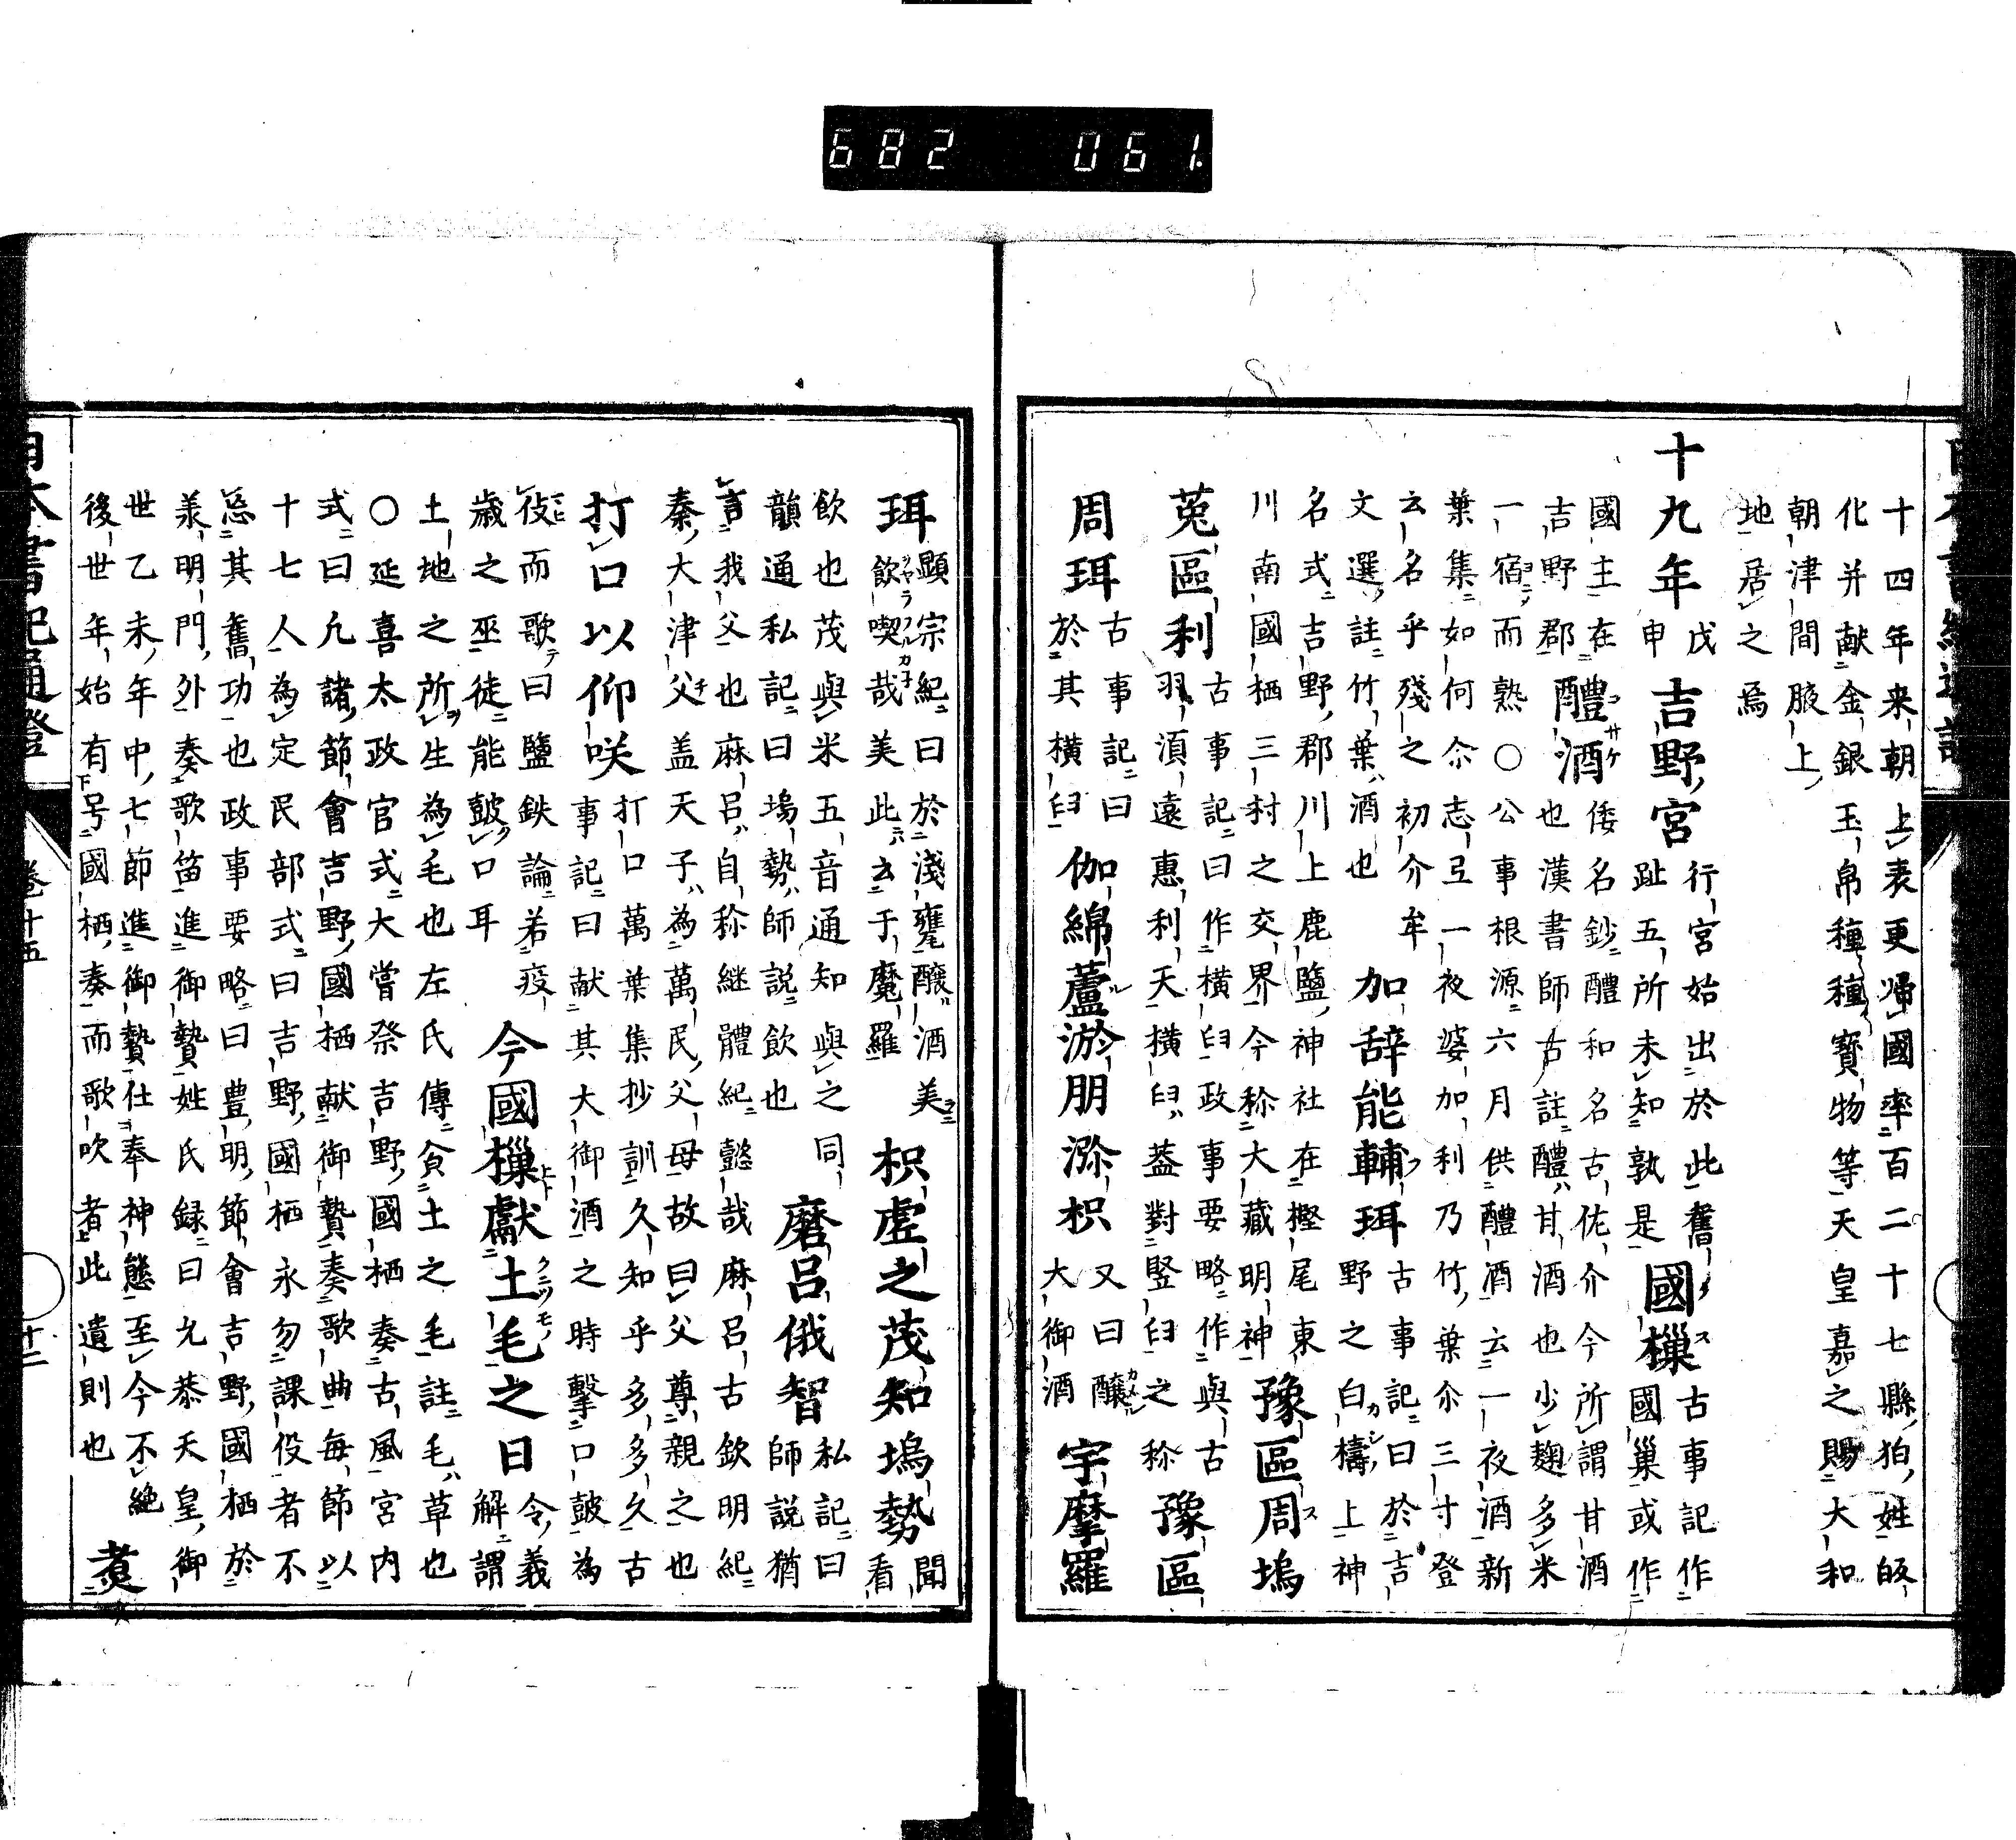 682 061
十四年来朝上表更帰國率百二十七縣狛姓
化并献金銀玉帛種種寳物等天皇嘉之賜大和
朝津間腋上
地居之焉
十九年戊申吉野宮行宮始出於此舊趾五所未知孰是國樔古事記作國巣或作
國主在吉野郡醴酒倭名鈔醴和名古佐介今所謂甘酒也漢書師古註醴甘酒也少麹多米
一宿而熟○公事根源六月供醴酒云一夜酒新
葉集如何尒志弖一夜婆加利乃竹葉尒三寸登
云名乎殘之初介牟加辞能輔珥古事記曰於吉野之白檮上神
文選註竹葉酒也
名式吉野郡川上鹿鹽神社在樫尾東豫區周塢
川南國栖三村之交界今称大藏明神
菟區利古事記曰作横臼政事要略作與古羽湏遠惠利天横臼蓋對竪臼之称豫區
周珥古事記曰於其横臼伽綿蘆淤朋濔枳又曰醸大御酒宇摩羅
珥顯宗紀曰於淺甕醸酒美飲喫哉美此云于魔羅枳虚之茂知塢勢聞看
飲也茂與米五音通知與之同磨呂俄智私記曰師説猶
韻通私記曰塢勢師説飲也
言我父也麻呂自称継體紀懿哉麻呂古欽明紀
秦大津父盖天子為萬民父母故曰父尊親之也
打口以仰咲打口萬葉集抄訓久知乎多多久古事記曰献其大御酒之時擊口皷為
伎而歌曰鹽鉄論若疫歳之巫徒能皷口耳今國樔獻土毛之日令義解謂
土地之所生為毛也左氏傳食土之毛註毛草也
○延喜太政官式大嘗祭吉野國栖奏古風宮内
式曰凡諸節會吉野國栖献御贄奏歌曲每節以
十七人為定民部式曰吉野國栖永勿課役者不
忘其舊功也政事要略曰豊明節會吉野國栖於
羕明門外奏歌笛進御贄姓氏録曰允恭天皇御
世乙未年中七節進御贄仕奉神態至今不絶
後世年始有号國栖奏而歌吹者此遺則也煮
日本書紀通證 卷十五 十二